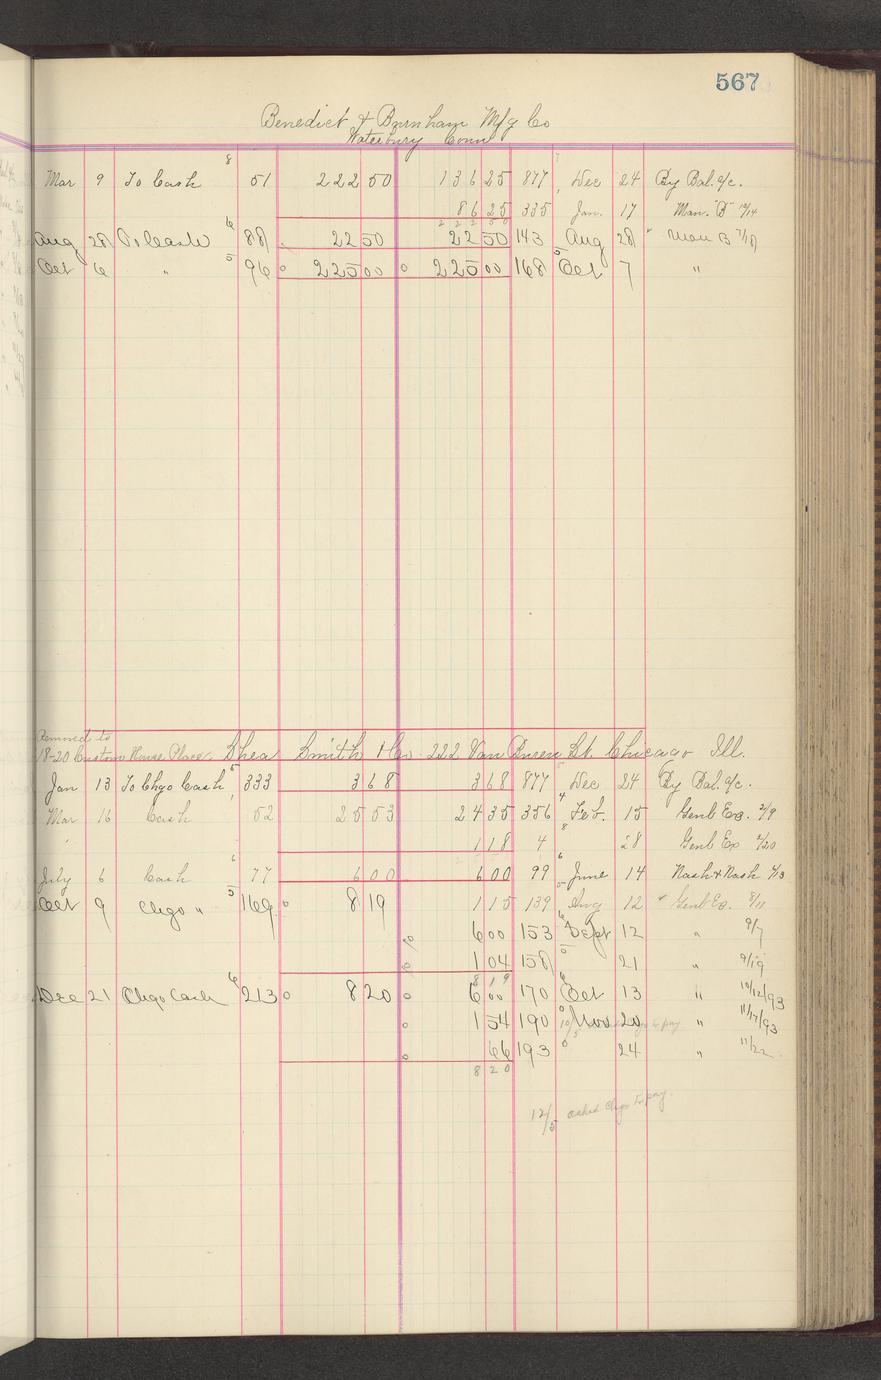 567
Benedict & Burnham Mfg Co
Waterbury Conn
Mar 9 To Cash 8 51 222 50 136 25 877 Dec 24 By Bal. a/c.
86 25 335 Jan. 17 Man. B
222 50
Aug 28 To Cash 6 88 22 50 22 50 143 Aug 28 " Man B 7/18
Oct 6 " 5 96 225 00 225 00 168 Oct 7 "
Removed to
18-20 Custom House Place. Shea Smith & Co. 222 Van Buren St. Chicago Ill.
Jan 13 To Chgo Cash 5 333 3 68 3 68 877 Dec 24 By Bal. a/c.
Mar 16 Cash 52 25 53 24 35 356 Feb. 15 Genl Ex. 2/9
1 18 4 28 Genl Ex 2/20
July 6 Cash 6 77 6 00 6 00 99 June 14 Nash & Nash
Oct 9 Chgo " 5 169 8 19 1 15 139 Aug 12 " Genl Ex. 8/11
6 00 153 Sept 12 " 9/7
1 04 158 21 " 9/19
8 19
Dec 21 Chgo Cash 6 213 8 20 6 00 170 Oct 13 " 10/12/93
1 54 190 Nov 20 " 11/17/93
66 193 24 " 11/22
8 20
12/5 asked Chgo to pay.